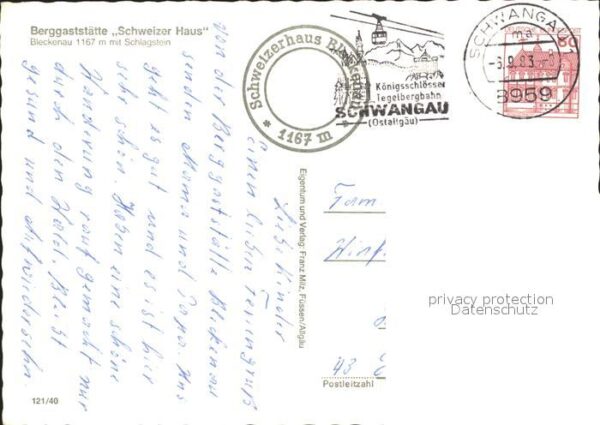 Berggaststätte „Schweizer Haus"
Bleckenau 1167 m mit Schlagstein
Schweizerhaus Bleckenau
* 1167 m *
Königsschlösser
Tegelbergbahn
SCHWANGAU
(Ostallgäu)
SCHWANGAU 1
ma
-6.9.83-8
8959
60
Lieb Kinder
einen lieben Feriengruß
von der Berggaststätte Bleckenau
senden Mama und Papa. Uns
geht es gut und es ist hier
sehr schön. Haben eine schöne
Wanderung rauf gemacht nur
durch den Wald. Bleibt
gesund und Aufwiedersehn.
Eigentum und Verlag: Franz Milz, Füssen/Allgäu
Fam
43
Postleitzahl
privacy protection
Datenschutz
121/40